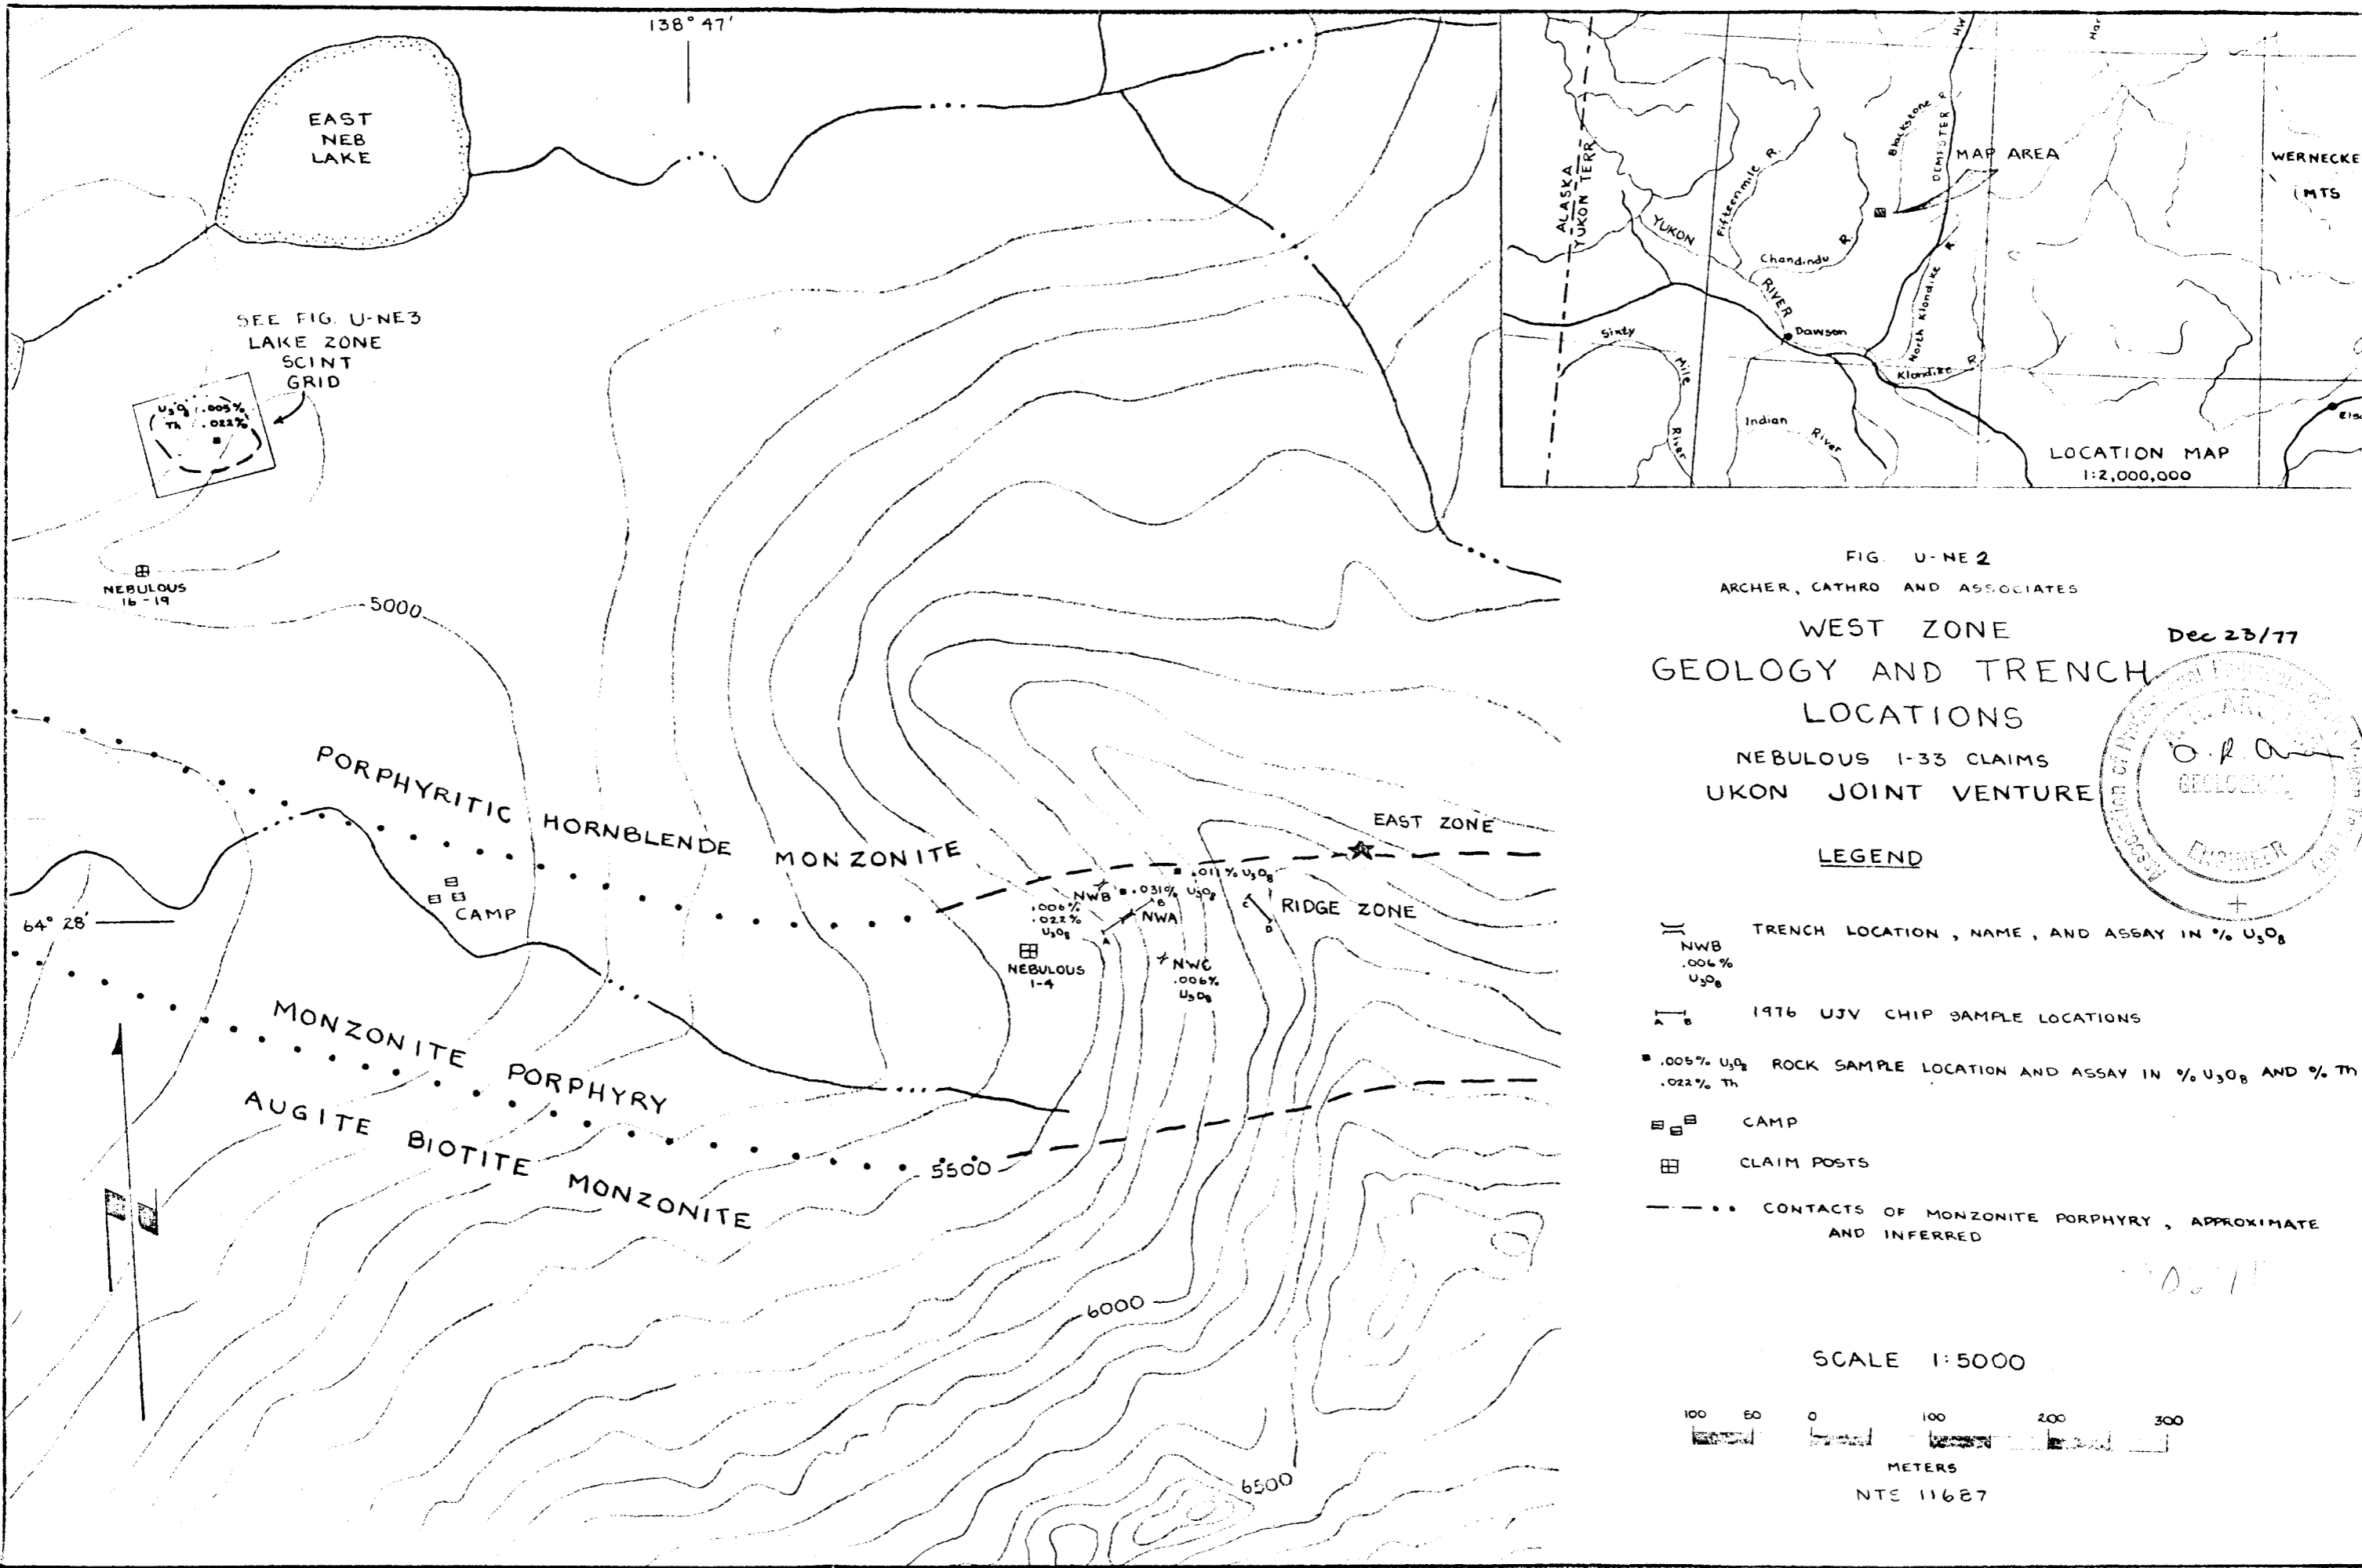 138° 47'
EAST
NEB
LAKE
SEE FIG. U-NE3
LAKE ZONE
SCINT
GRID
U₃O₈ .005%
Th .022%
NEBULOUS
16-19
5000
PORPHYRITIC HORNBLENDE MONZONITE
CAMP
64° 28'
MONZONITE PORPHYRY
AUGITE BIOTITE MONZONITE
5500
6000
6500
EAST ZONE
.011% U₃O₈
.031% U₃O₈
NWB
.006%
.022%
U₃O₈
B
NWA
A
C
D
RIDGE ZONE
NEBULOUS
1-4
NWC
.006%
U₃O₈
ALASKA
YUKON TERR
YUKON
RIVER
Fifteenmile R.
Chandindu R.
Blackstone R
DEMPSTER
HW
MAP AREA
WERNECKE
MTS
North Klondike R
Dawson
Klondike R
Sixty Mile River
Indian River
LOCATION MAP
1:2,000,000
FIG. U-NE 2
ARCHER, CATHRO AND ASSOCIATES
WEST ZONE
Dec 23/77
GEOLOGY AND TRENCH
LOCATIONS
NEBULOUS 1-33 CLAIMS
UKON JOINT VENTURE
GEOLOGICAL
ENGINEER
LEGEND
TRENCH LOCATION, NAME, AND ASSAY IN % U₃O₈
NWB
.006%
U₃O₈
A B
1976 UJV CHIP SAMPLE LOCATIONS
.005% U₃O₈ ROCK SAMPLE LOCATION AND ASSAY IN % U₃O₈ AND % Th
.022% Th
CAMP
CLAIM POSTS
CONTACTS OF MONZONITE PORPHYRY, APPROXIMATE
AND INFERRED
SCALE 1:5000
100 50 0 100 200 300
METERS
NTS 116B7